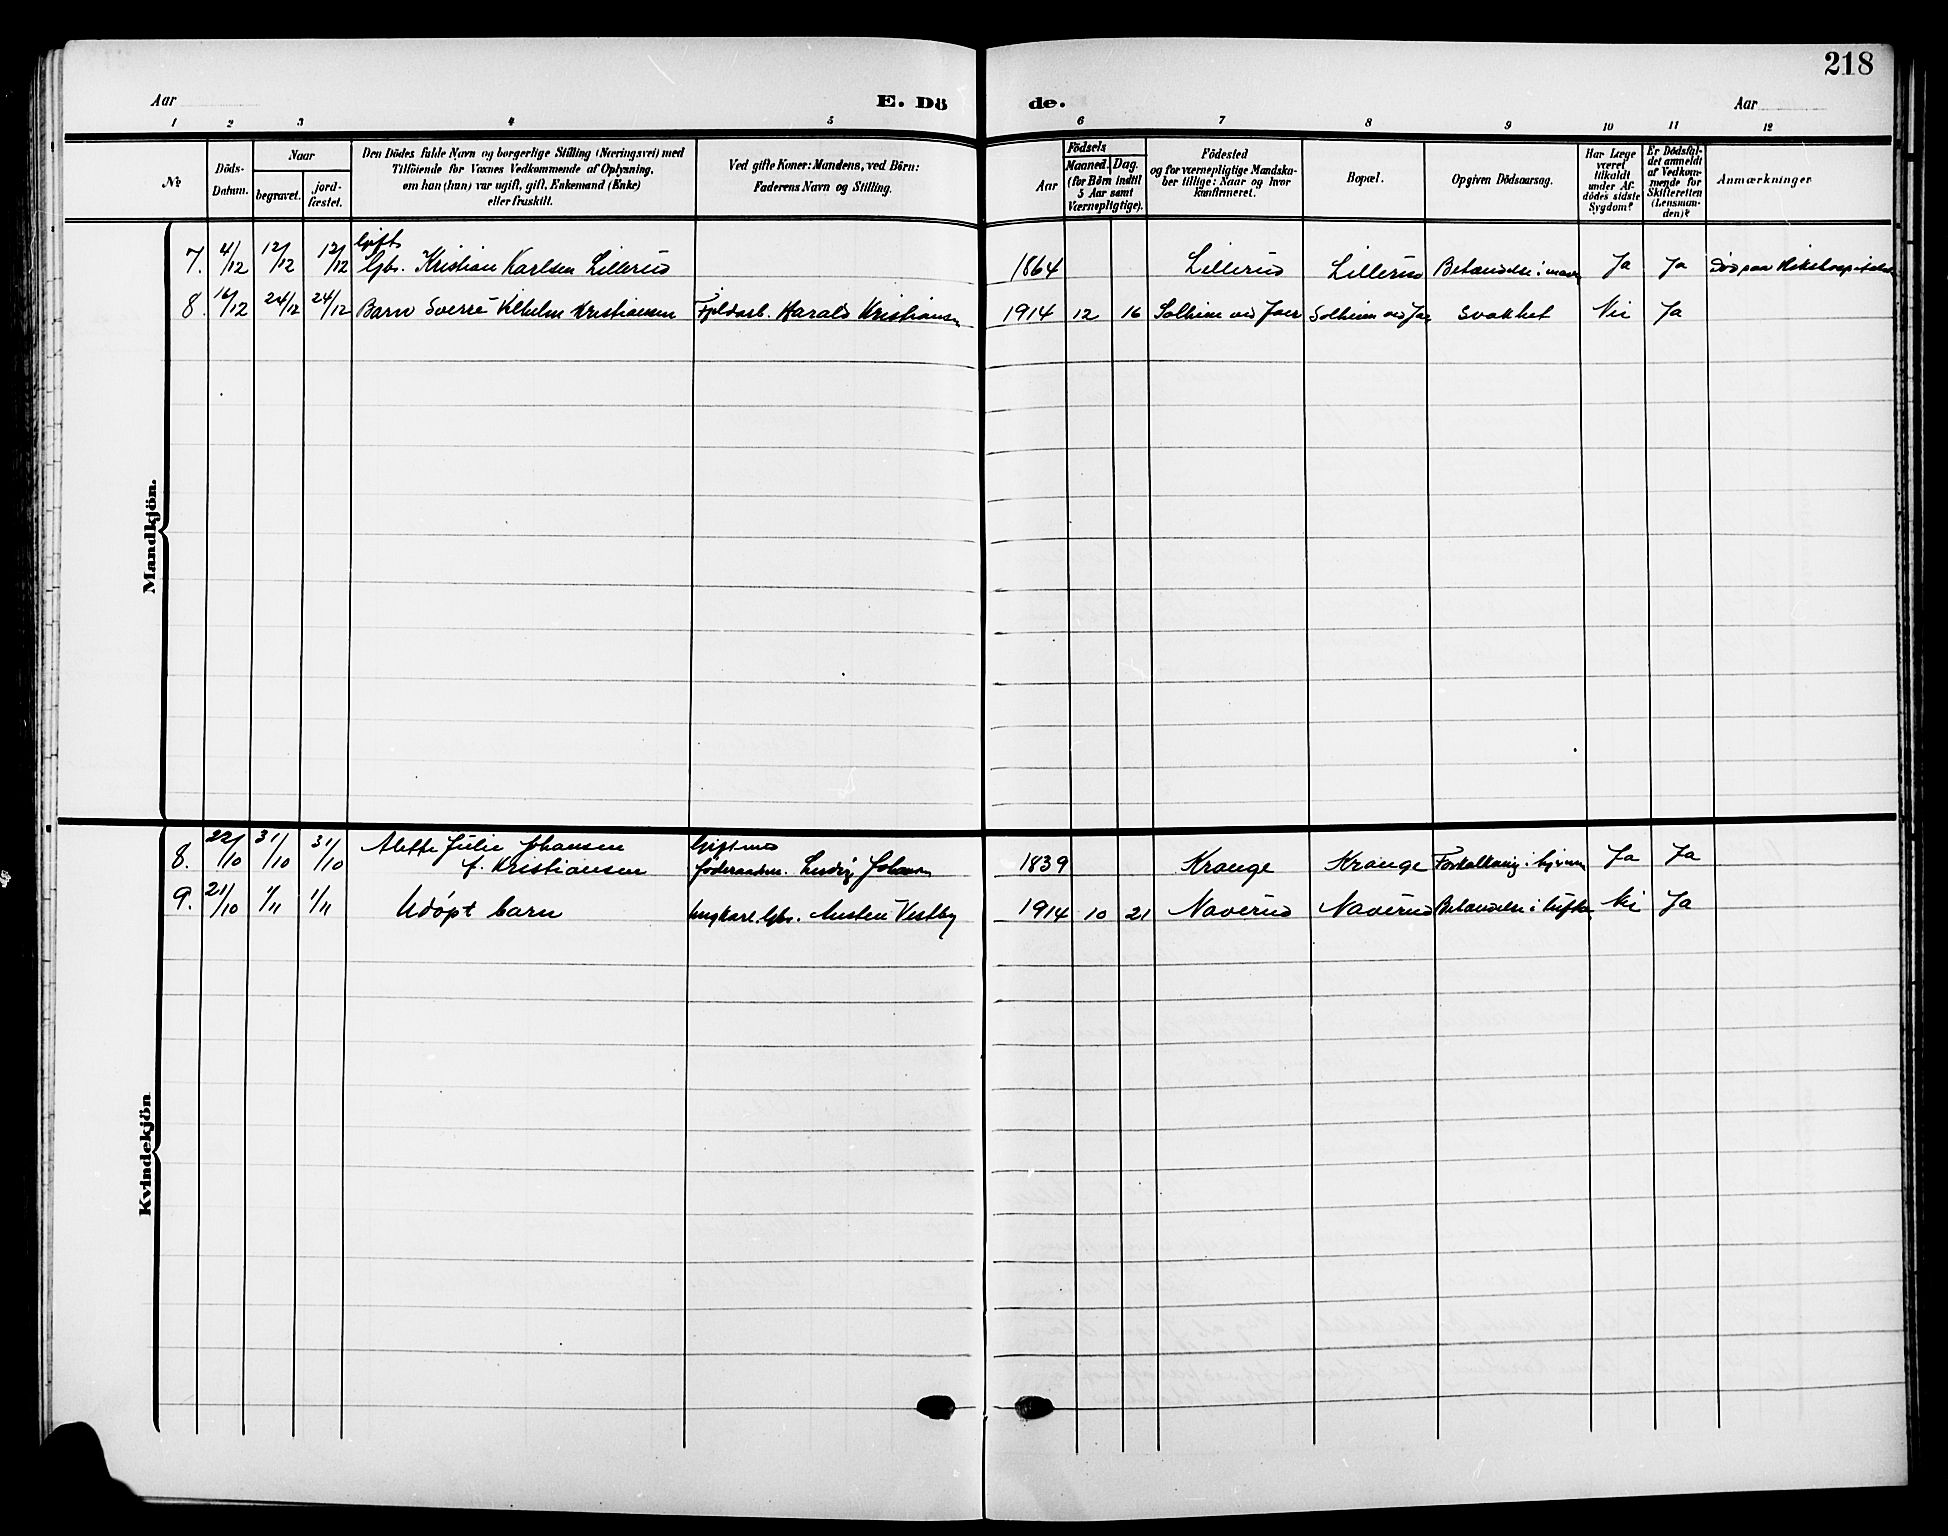 218
Aar
E. Dö
de.
Aar
1 2 3 4 5 6 7 8 9 10 11 12
No
Döds-
Datum.
Naar
begravet.
jord-
fæstet.
Den Dödes fulde Navn og borgerlige Stilling (Næringsvei) med
Tilföiende for Voxnes Vedkommende af Oplysning,
om han (hun) var ugift, gift, Enkemand (Enke)
eller fraskilt.
Ved gifte Koner: Mandens, ved Börn:
Faderens Navn og Stilling.
Födsels
Aar
Maaned. Dag.
(for Börn indtil
5 Aar samt
Værnepligtige).
Födested
og for værnepligtige Mandska-
ber tillige: Naar og hvor
konfirmeret.
Bopæl.
Opgiven Dödsaarsag.
Har Læge
været
tilkaldt
under Af-
dödes sidste
Sygdom?
Er Dödsfal-
det anmeldt
af Vedkom-
mende for
Skifteretten
(Lensman-
den)?
Anmærkninger
Mandkjön.
Gift
7. 4/12 12/12 12/12 Gbr. Kristian Karlsen Lillerud 1864 Lillerud Lillerud Betændelse i maven Ja Ja Död paa Rikshospitalet
8. 16/12 24/12 24/12 Barn Sverre Vilhelm Kristiansen Fjeldarb. Harald Kristiansen 1914 12 16 Solheim ved Jaer Solheim ved Jaer Svakhet Nei Ja
Kvindekjön
8. 22/10 31/10 31/10 Alette Julie Johansen Gift med
f. Kristiansen föderaadsm. Ludvig Johansen 1839 Krange Krange Forkalkning i hjernen Ja Ja
9. 21/10 1/11 1/11 Udöpt barn Ungkarl. Gbr. Austen Vestby 1914 10 21 Naverud Naverud Betændelse i luftr. Nei Ja